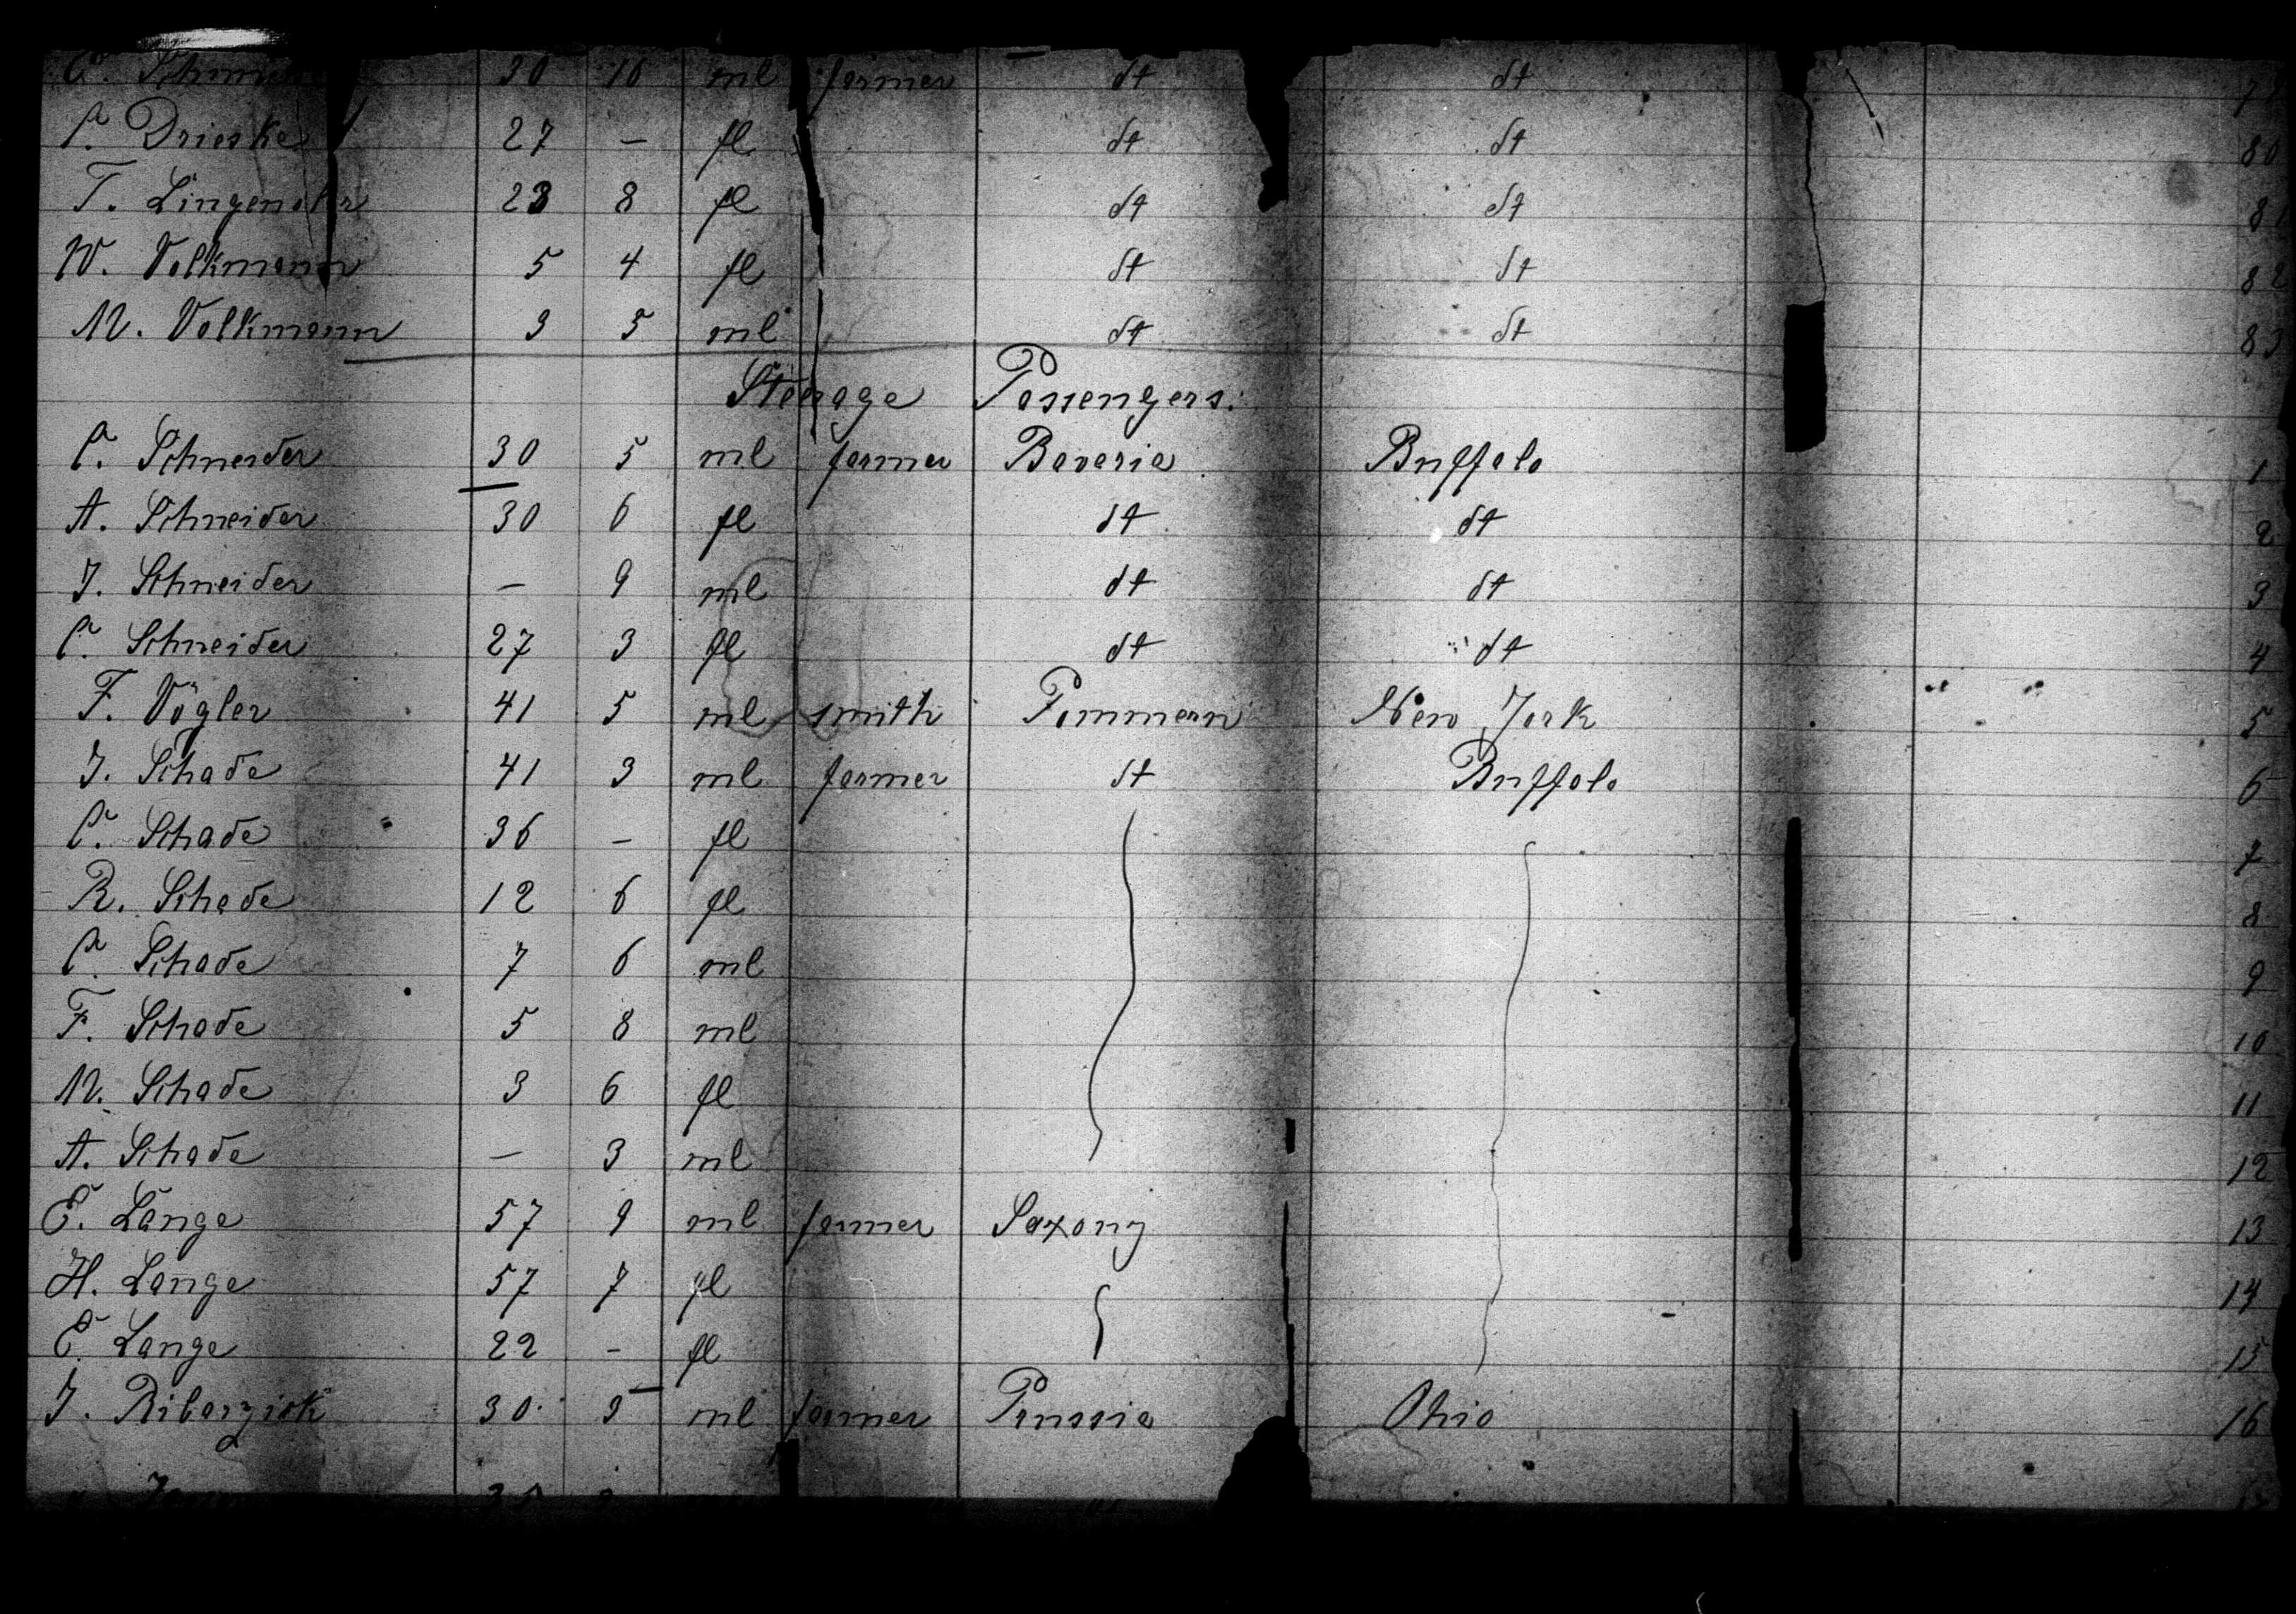 30 10 ml farmer dt dt
C. Drieske 27 – fl dt dt 80
T. 23 8 fl dt dt
W. Volkmann 5 4 fl dt dt 82
M. Volkmann 3 5 ml dt dt 83
Steerage Passengers.
C. Schneider 30 5 ml farmer Bavaria Buffalo 1
A. Schneider 30 6 fl dt dt 2
J. Schneider – 9 ml dt dt 3
C. Schneider 27 3 fl dt dt 4
F. Vögler 41 5 ml smith Pommern New York 5
J. Schade 41 3 ml farmer dt Buffalo 6
C. Schade 36 – fl 7
R. Schade 12 6 fl 8
C. Schade 7 6 ml 9
F. Schade 5 8 ml 10
M. Schade 3 6 fl 11
A. Schade – 3 ml 12
E. Lange 57 9 ml farmer Saxony 13
H. Lange 57 7 fl 14
C. Lange 22 – fl 15
J. 30 ml farmer Prussia Ohio 16
35